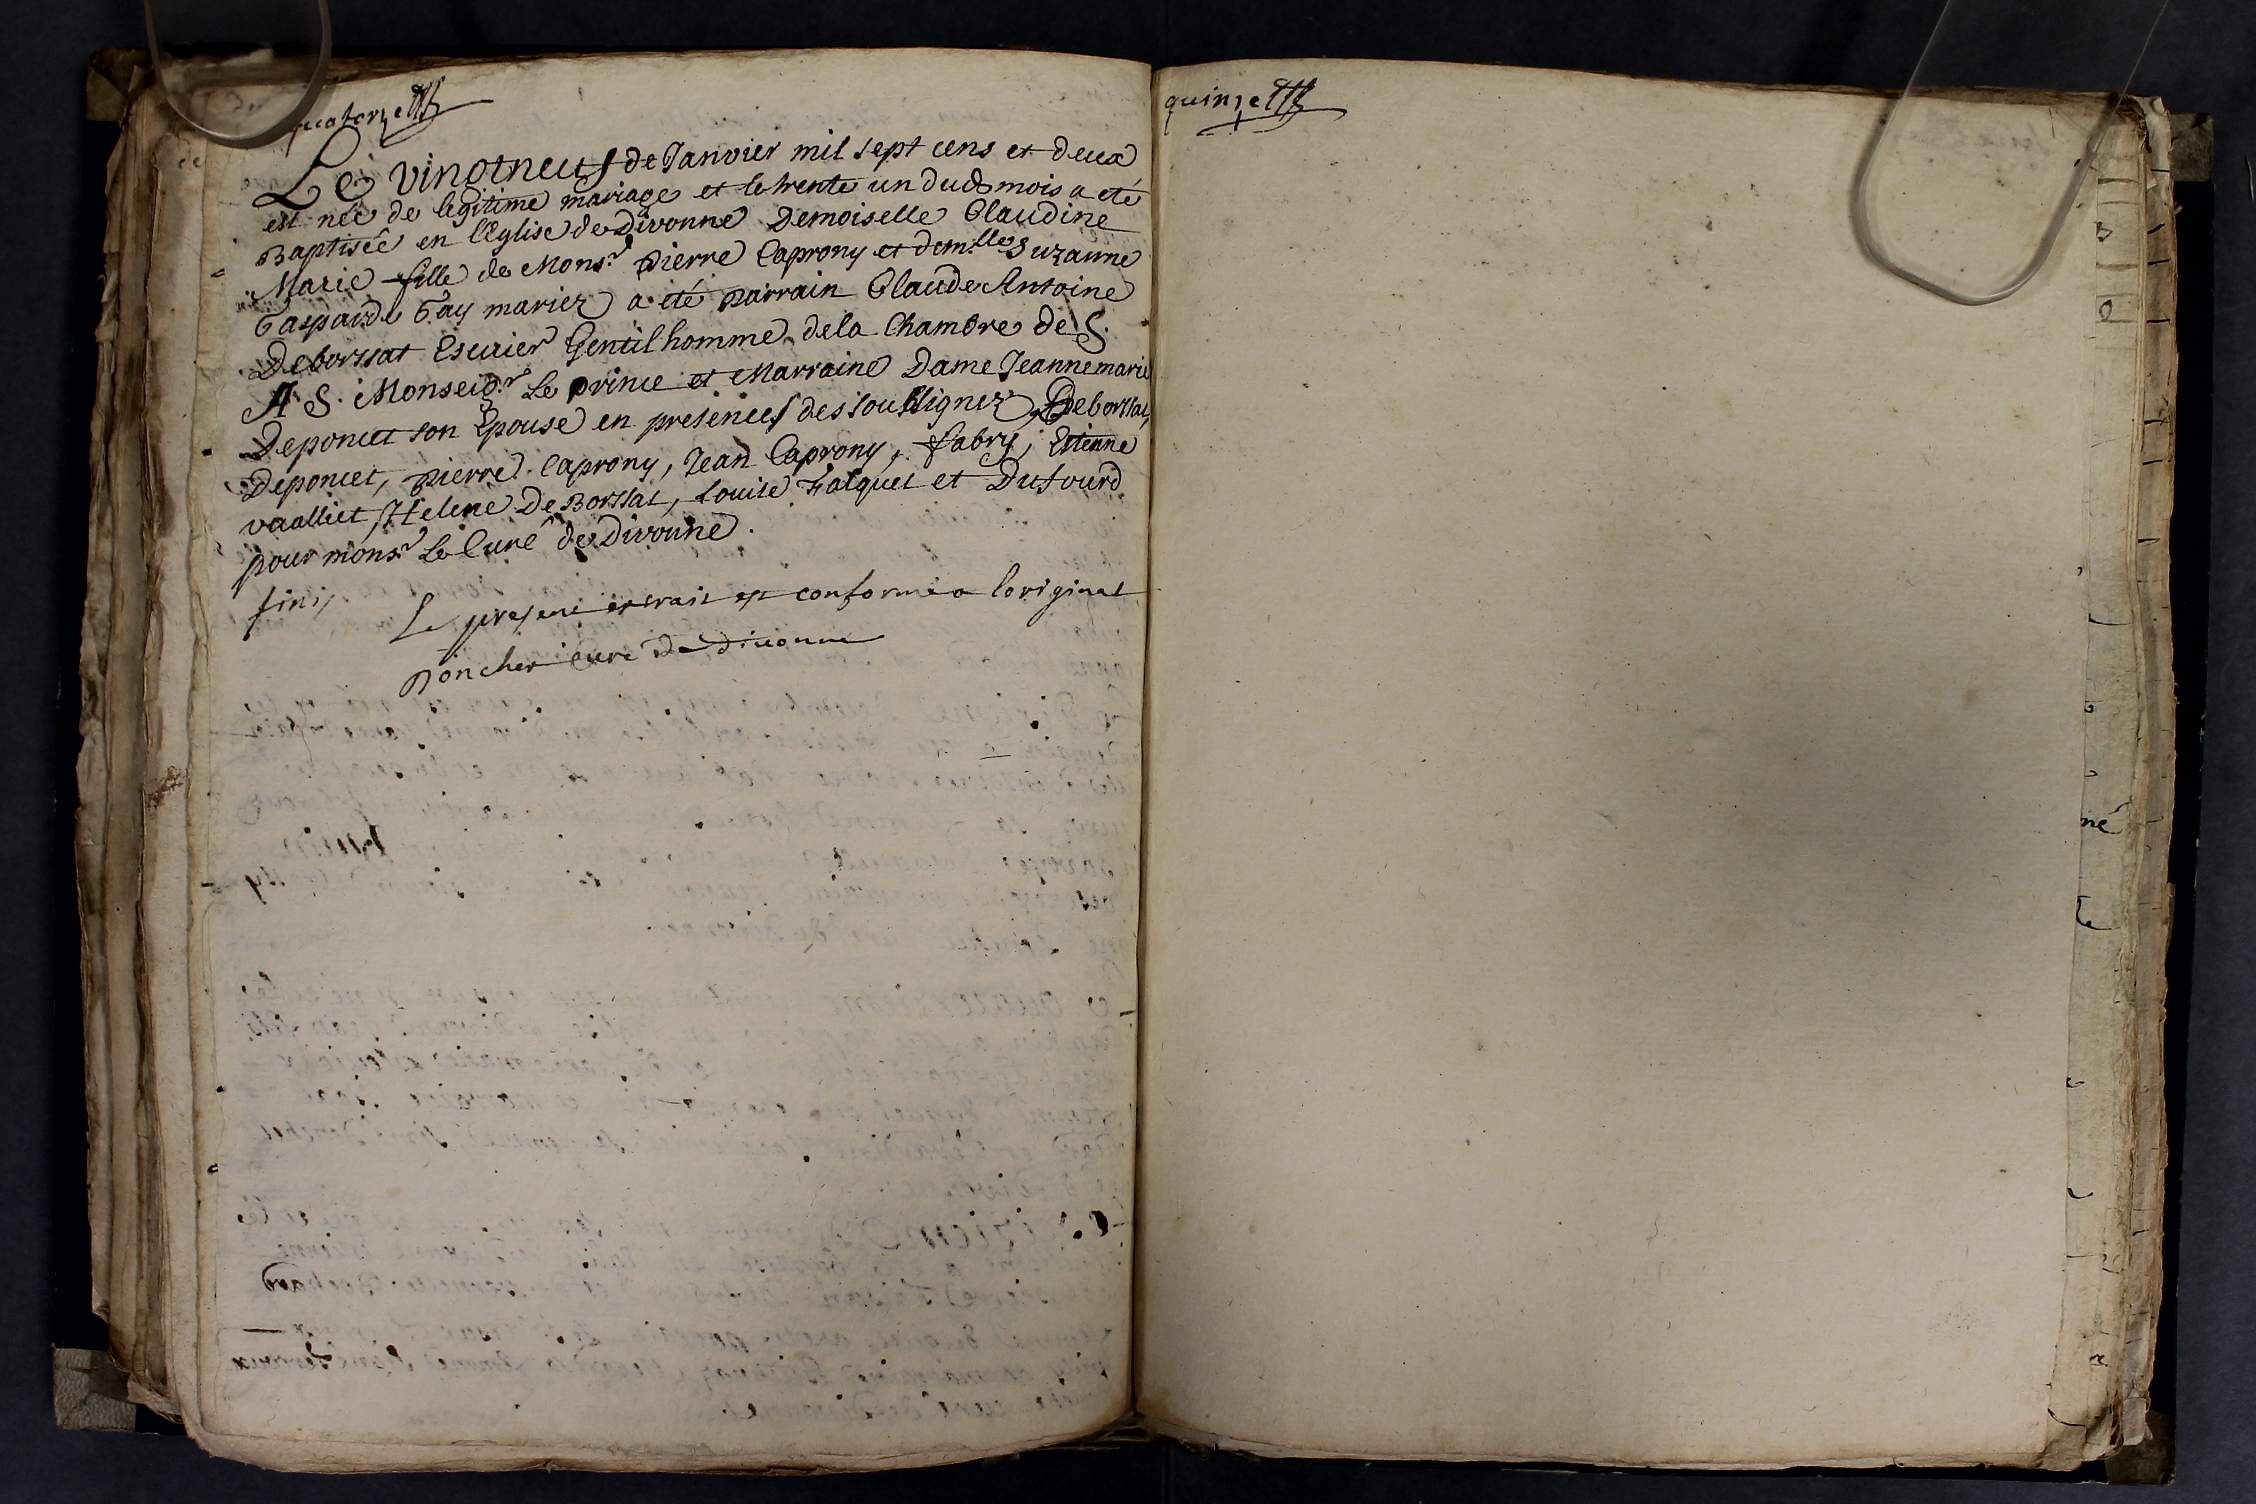 quatorze
Le vingtneuf de Janvier mil sept cens et deux
est née de legitime mariage et le trente un dud mois a eté
Baptisée en l'Eglise de Divonne Demoiselle Claudine
Marie fille de Mons.r Pierre Caprony et dem.lle Suzanne
Gasparde Gay mariez a eté parrain Claude Antoine
Deborssat Escuier Gentilhomme de la Chambre de S.
A S. Monseig.r Le prince et Marraine Dame Jeanne marie
Deponcet son Epouse en presences des soussignez, Deborssat,
Deponcet, Pierre Caprony, Jean Caprony, Fabry, Etienne
vualliet, Helene De Borssat, Louise Falquet et Dufourd
pour mons.r Le Curé de Divonne.
finis
Le present extrait est conforme a loriginal
Poncher Curé de divonne
quinze
né